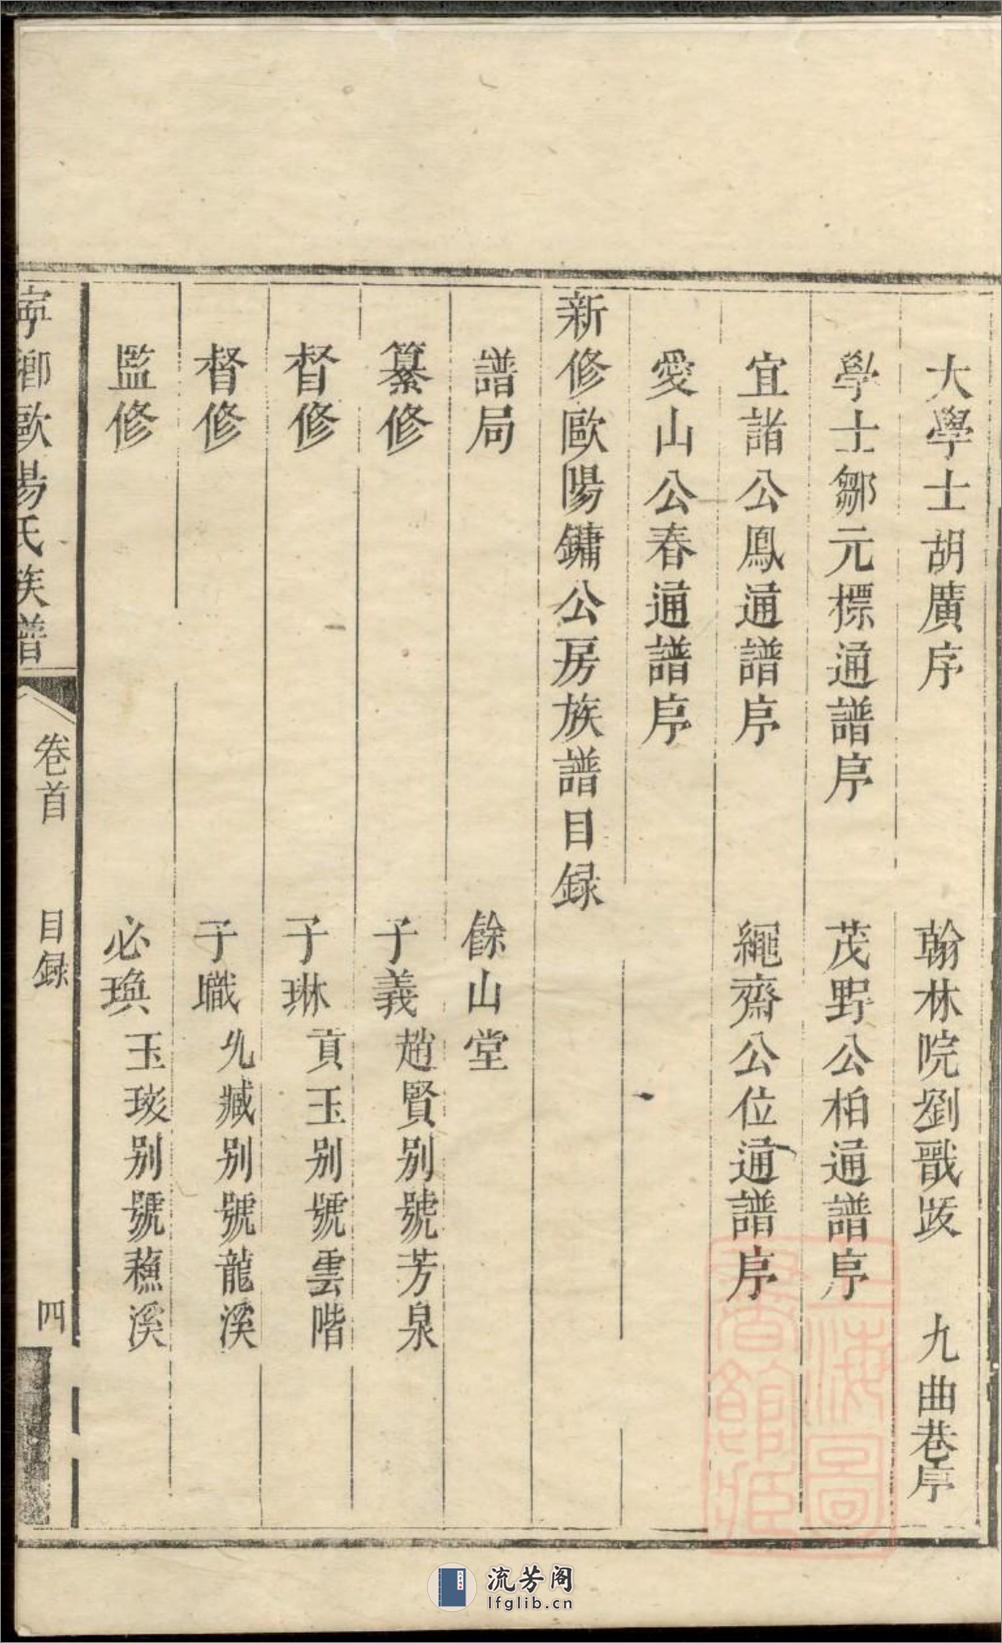 大學士胡廣序　翰林院劉戩跋　九曲巷序
學士鄒元標通譜序　茂野公柏通譜序
宜諸公鳳通譜序　繩齋公位通譜序
愛山公春通譜序
新修歐陽鏞公房族譜目録
譜局　餘山堂
纂修　子義　趙賢别號芳泉
督修　子琳　貢玉别號雲階
督修　子職　允臧别號龍溪
監修　必瑍　玉琰别號蘓溪
寧鄉歐陽氏族譜　卷首　目録　四
流芳阁
lfglib.cn